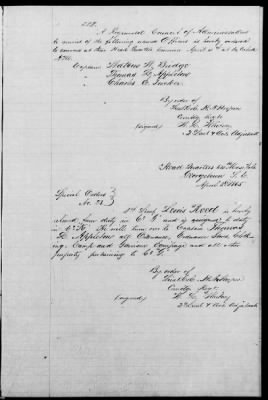 A Regimental Council of Administration
to consist of the following named Officers is hereby ordered
to convene at these Head Quarters tomorrow April
A.M.
Captains Watson W. Bridge
Thomas L. Appleton
Charles E. Tucker
By order of
Lieut Col. H. N. Hooper
Comdg Regt.
(signed)
2d Lieut & Act. Adjutant
Head Quarters 54 Mass Vols
Georgetown S. C.
April 1865
Special Orders
No.
2nd Lieut Lewis Reed is hereby
relieved from duty in Co. "G" and is assigned to duty
in Co. He will turn over to Captain Thomas
L. Appleton all Ordnance, Ordnance Stores, Cloth-
ing, Camp and Garrison Equipage and all other
property pertaining to Co. "G"
By order of
Lieut Col. H. N. Hooper
Comdg Regt.
(signed)
2d Lieut & Act. Adjutant